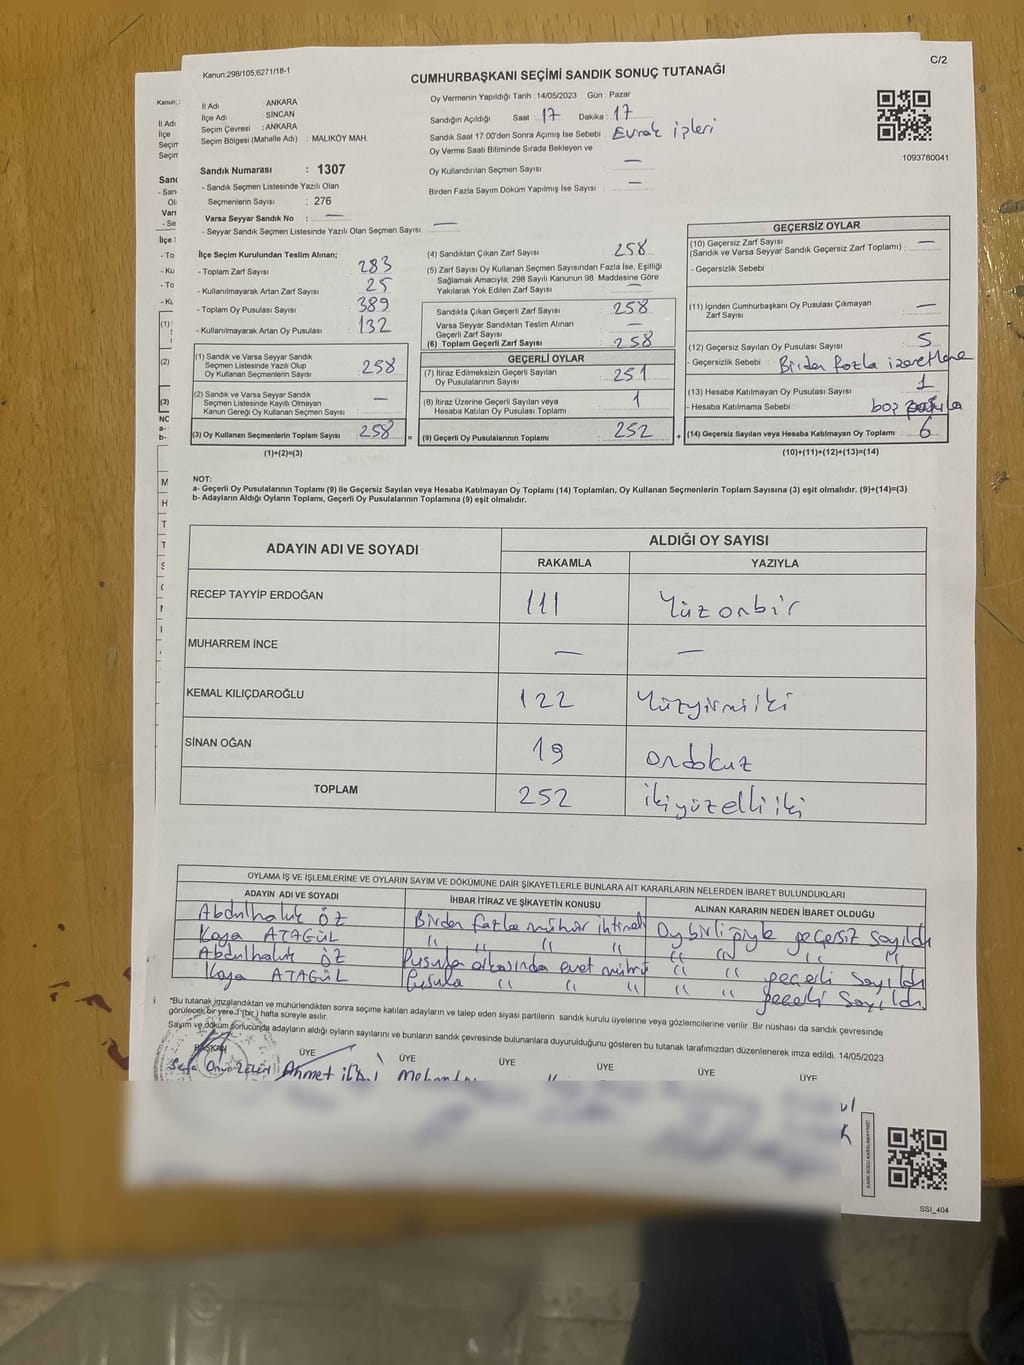 Kanun;298/105,6271/18-1
C/2
CUMHURBAŞKANI SEÇİMİ SANDIK SONUÇ TUTANAĞI
İl Adı ANKARA
İlçe Adı SİNCAN
Seçim Çevresi : ANKARA
Seçim Bölgesi (Mahalle Adı) : MALIKÖY MAH.
Oy Vermenin Yapıldığı Tarih : 14/05/2023 Gün : Pazar
Sandığın Açıldığı Saat : 17 Dakika : 17
Sandık Saat 17:00'den Sonra Açımış İse Sebebi : Evrak işleri
Oy Verme Saati Bitiminde Sırada Bekleyen ve
Oy Kullandırılan Seçmen Sayısı : —
Birden Fazla Sayım Döküm Yapılmış İse Sayısı : —
1093780041
Sandık Numarası : 1307
- Sandık Seçmen Listesinde Yazılı Olan
Seçmenlerin Sayısı : 276
Varsa Seyyar Sandık No : —
- Seyyar Sandık Seçmen Listesinde Yazılı Olan Seçmen Sayısı: —
İlçe Seçim Kurulundan Teslim Alınan;
- Toplam Zarf Sayısı : 283
- Kullanılmayarak Artan Zarf Sayısı : 25
- Toplam Oy Pusulası Sayısı : 389
- Kullanılmayarak Artan Oy Pusulası : 132
(1) Sandık ve Varsa Seyyar Sandık
Seçmen Listesinde Yazılı Olup
Oy Kullanan Seçmenlerin Sayısı : 258
(2) Sandık ve Varsa Seyyar Sandık
Seçmen Listesinde Kayıtlı Olmayan
Kanun Gereği Oy Kullanan Seçmen Sayısı : —
(3) Oy Kullanan Seçmenlerin Toplam Sayısı : 258
(1)+(2)=(3)
(4) Sandıktan Çıkan Zarf Sayısı : 258
(5) Zarf Sayısı Oy Kullanan Seçmen Sayısından Fazla İse, Eşitliği
Sağlamak Amacıyla, 298 Sayılı Kanunun 98. Maddesine Göre
Yakılarak Yok Edilen Zarf Sayısı : —
Sandıkta Çıkan Geçerli Zarf Sayısı : 258
Varsa Seyyar Sandıktan Teslim Alınan
Geçerli Zarf Sayısı : —
(6) Toplam Geçerli Zarf Sayısı : 258
GEÇERLİ OYLAR
(7) İtiraz Edilmeksizin Geçerli Sayılan
Oy Pusulalarının Sayısı : 251
(8) İtiraz Üzerine Geçerli Sayılan veya
Hesaba Katılan Oy Pusulası Toplamı : 1
(9) Geçerli Oy Pusulalarının Toplamı : 252
GEÇERSİZ OYLAR
(10) Geçersiz Zarf Sayısı
(Sandık ve Varsa Seyyar Sandık Geçersiz Zarf Toplamı) : —
- Geçersizlik Sebebi :
(11) İçinden Cumhurbaşkanı Oy Pusulası Çıkmayan
Zarf Sayısı : —
(12) Geçersiz Sayılan Oy Pusulası Sayısı : 5
- Geçersizlik Sebebi : Birden fazla işaretleme
(13) Hesaba Katılmayan Oy Pusulası Sayısı : 1
- Hesaba Katılmama Sebebi : boş pusula
(14) Geçersiz Sayılan veya Hesaba Katılmayan Oy Toplamı : 6
(10)+(11)+(12)+(13)=(14)
NOT:
a- Geçerli Oy Pusulalarının Toplamı (9) ile Geçersiz Sayılan veya Hesaba Katılmayan Oy Toplamı (14) Toplamları, Oy Kullanan Seçmenlerin Toplam Sayısına (3) eşit olmalıdır. (9)+(14)=(3)
b- Adayların Aldığı Oyların Toplamı, Geçerli Oy Pusulalarının Toplamına (9) eşit olmalıdır.
ADAYIN ADI VE SOYADI ALDIĞI OY SAYISI
RAKAMLA YAZIYLA
RECEP TAYYİP ERDOĞAN 111 Yüz onbir
MUHARREM İNCE — —
KEMAL KILIÇDAROĞLU 122 Yüzyirmi iki
SİNAN OĞAN 19 ondokuz
TOPLAM 252 ikiyüzelli iki
OYLAMA İŞ VE İŞLEMLERİNE VE OYLARIN SAYIM VE DÖKÜMÜNE DAİR ŞİKAYETLERLE BUNLARA AİT KARARLARIN NELERDEN İBARET BULUNDUKLARI
ADAYIN ADI VE SOYADI İHBAR İTİRAZ VE ŞİKAYETİN KONUSU ALINAN KARARIN NEDEN İBARET OLDUĞU
Abdulhaluk ÖZ Birden fazla mühür ihtimali Oy birliğiyle geçersiz sayıldı
Kaya ATAGÜL " " " " " " " "
Abdulhaluk ÖZ Pusula arkasında evet mührü " " geçerli sayıldı
Kaya ATAGÜL Pusula " " " " " geçerli sayıldı.
*Bu tutanak imzalandıktan ve mühürlendikten sonra seçime katılan adayların ve talep eden siyasi partilerin sandık kurulu üyelerine veya gözlemcilerine verilir. Bir nüshası da sandık çevresinde
görülecek bir yere 1 (bir) hafta süreyle asılır.
Sayım ve döküm sonucunda adayların aldığı oyların sayılarını ve bunların sandık çevresinde bulunanlara duyurulduğunu gösteren bu tutanak tarafımızdan düzenlenerek imza edildi. 14/05/2023
BAŞKAN ÜYE ÜYE ÜYE ÜYE ÜYE
Ahmet
SSI_404